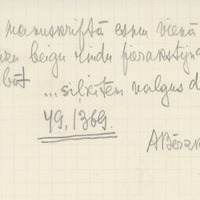 manuskriptā esmu vienā
beigu rindu pierakstījis
būt ... siļķītēm valgus d
49, 1369.
ABērz